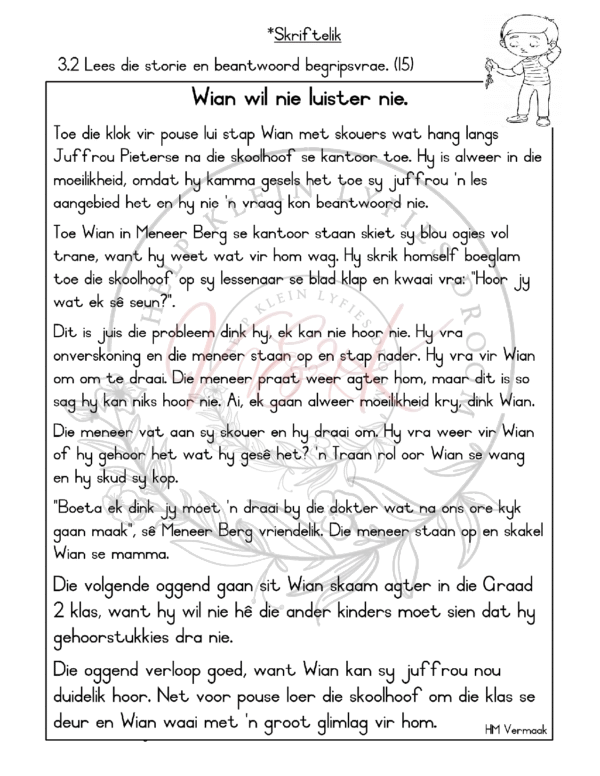 *Skriftelik
3.2 Lees die storie en beantwoord begripsvrae. (15)
Wian wil nie luister nie.
Toe die klok vir pouse lui stap Wian met skouers wat hang langs
Juffrou Pieterse na die skoolhoof se kantoor toe. Hy is alweer in die
moeilikheid, omdat hy kamma gesels het toe sy juffrou 'n les
aangebied het en hy nie 'n vraag kon beantwoord nie.
Toe Wian in Meneer Berg se kantoor staan skiet sy blou ogies vol
trane, want hy weet wat vir hom wag. Hy skrik homself boeglam
toe die skoolhoof op sy lessenaar se blad klap en kwaai vra: "Hoor jy
wat ek sê seun?".
Dit is juis die probleem dink hy, ek kan nie hoor nie. Hy vra
onverskoning en die meneer staan op en stap nader. Hy vra vir Wian
om om te draai. Die meneer praat weer agter hom, maar dit is so
sag hy kan niks hoor nie. Ai, ek gaan alweer moeilikheid kry, dink Wian.
Die meneer vat aan sy skouer en hy draai om. Hy vra weer vir Wian
of hy gehoor het wat hy gesê het? 'n Traan rol oor Wian se wang
en hy skud sy kop.
"Boeta ek dink jy moet 'n draai by die dokter wat na ons ore kyk
gaan maak", sê Meneer Berg vriendelik. Die meneer staan op en skakel
Wian se mamma.
Die volgende oggend gaan sit Wian skaam agter in die Graad
2 klas, want hy wil nie hê die ander kinders moet sien dat hy
gehoorstukkies dra nie.
Die oggend verloop goed, want Wian kan sy juffrou nou
duidelik hoor. Net voor pouse loer die skoolhoof om die klas se
deur en Wian waai met 'n groot glimlag vir hom.
HM Vermaak
HELP KLEIN LYFIES DROOM